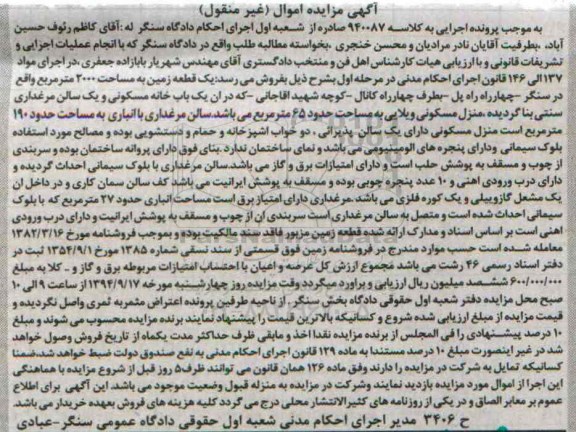 آگهی مزایده اموال (غیر منقول)
به موجب پرونده اجرایی به کلاسه ۹۴۰۰۸۷ صادره از شعبه اول اجرای احکام دادگاه سنگر له :آقای کاظم رئوف حسین
آباده ،بطرفیت آقایان نادر مرادیان و محسن خنجری ،بخواسته مطالبه طلب واقع در دادگاه سنگر که با انجام عملیات اجرایی و
تشریفات قانونی و با ارزیابی هیات کارشناس اهل فن و منتخب دادگستری آقای مهندس شهریار بابازاده جعفری ،در اجرای مواد
۱۳۷ الی ۱۴۶ قانون اجرای احکام مدنی در مرحله اول بشرح ذیل بفروش می رسد:یک قطعه زمین به مساحت ۲۰۰۰ مترمربع واقع
در سنگر -چهارراه راه پل -بطرف چهارراه کانال -کوچه شهید آقاجانی -که در آن یک باب خانه مسکونی و یک سالن مرغداری
سنتی بنا گردیده ،منزل مسکونی ویلایی به مساحت حدود ۶۵ مترمربع می باشد.سالن مرغداری با انباری به مساحت حدود ۱۹۰
مترمربع است منزل مسکونی دارای یک سالن پذیرائی ، دو خواب اشپزخانه و حمام و دستشویی بوده و مصالح مورد استفاده
بلوک سیمانی ودارای پنجره های الومینیومی می باشد و نمای ساختمان ندارد.بنای فوق دارای پروانه ساختمان بوده و سربندی
از چوب و مسقف به پوشش حلب است و دارای امتیازات برق و گاز می باشد.سالن مرغداری با بلوک سیمانی احداث گردیده و
دارای درب ورودی اهنی و ۱۰ عدد پنجره چوبی بوده و مسقف به پوشش ایرانیت می باشد کف سالن سمان کاری و در داخل ان
یک مشعل گازوییلی و یک کوره فلزی می باشد .مرغداری دارای امتیاز برق است مساحت انباری حدود ۲۷ مترمربع که با بلوک
سیمانی احداث شده است و متصل به سالن مرغداری است سربندی ان از چوب و مسقف به پوشش ایرانیت و دارای درب ورودی
اهنی است بر اساس اسناد و مدارک ارائه شده قطعه زمین مزبور فاقد سند مالکیت بوده و بموجب فروشنامه مورخ ۱۳۸۲/۳/۱۶
معامله شده است حسب موارد مندرج در فروشنامه زمین فوق قسمتی از سند نسقی شماره ۱۳۸۵ مورخ ۱۳۵۴/۹/۱ ثبت در
دفتر اسناد رسمی ۴۶ رشت می باشد مجموع ارزش کل عرصه و اعیان با احتساب امتیازات مربوطه برق و گاز و - کلا به مبلغ
۶۰۰/۰۰۰/۰۰۰ ششصد میلیون ریال ارزیابی و براورد میگردد وقت مزایده روز چهارشنبه مورخه ۱۳۹۴/۹/۱۷ از ساعت ۹ الی ۱۰
صبح محل مزایده دفتر شعبه اول حقوقی دادگاه بخش سنگر . از ناحیه طرفین پرونده اعتراض مثمربه ثمری واصل نگردیده و
قیمت مزایده از مبلغ ارزیابی شده شروع و کسانیکه بالاترین قیمت را پیشنهاد نمایند برنده مزایده محسوب می شوند و مبلغ
۱۰ درصد پیشنهادی را فی المجلس از برنده مزایده نقدا اخذ و مابقی ظرف حداکثر مدت یکماه از تاریخ فروش وصول خواهد
شد در غیر اینصورت مبلغ ۱۰ درصد مستندا به ماده ۱۲۹ قانون اجرای احکام مدنی به نفع صندوق دولت ضبط خواهد شد،ضمنا
کسانیکه تمایل به شرکت در مزایده را دارند وفق ماده ۱۲۶ همان قانون می توانند ظرف۵ روز قبل از شروع مزایده با هماهنگی
این اجرا از اموال مورد مزایده بازدید نمایند وشرکت در مزایده به منزله قبول وضعیت موجود می باشد. این آگهی برای اطلاع
عموم بر معابر الصاق و در یکی از روزنامه های کثیرالانتشار محلی درج می گردد کلیه هزینه های فروش بعهده خریدار می باشد.
ح ۳۴۰۶ مدیر اجرای احکام مدنی شعبه اول حقوقی دادگاه عمومی سنگر-عبادی